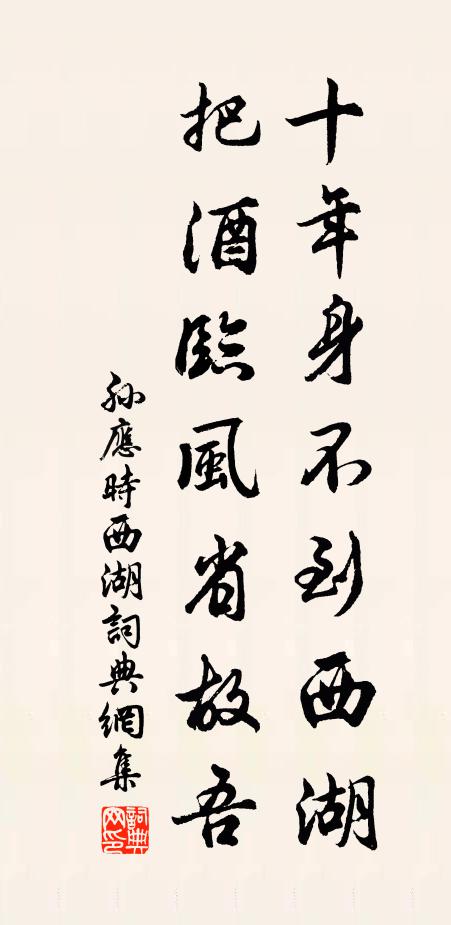 十年身不到西湖
把酒臨風省故吾
孫應時西湖詞典網集
詞典網印